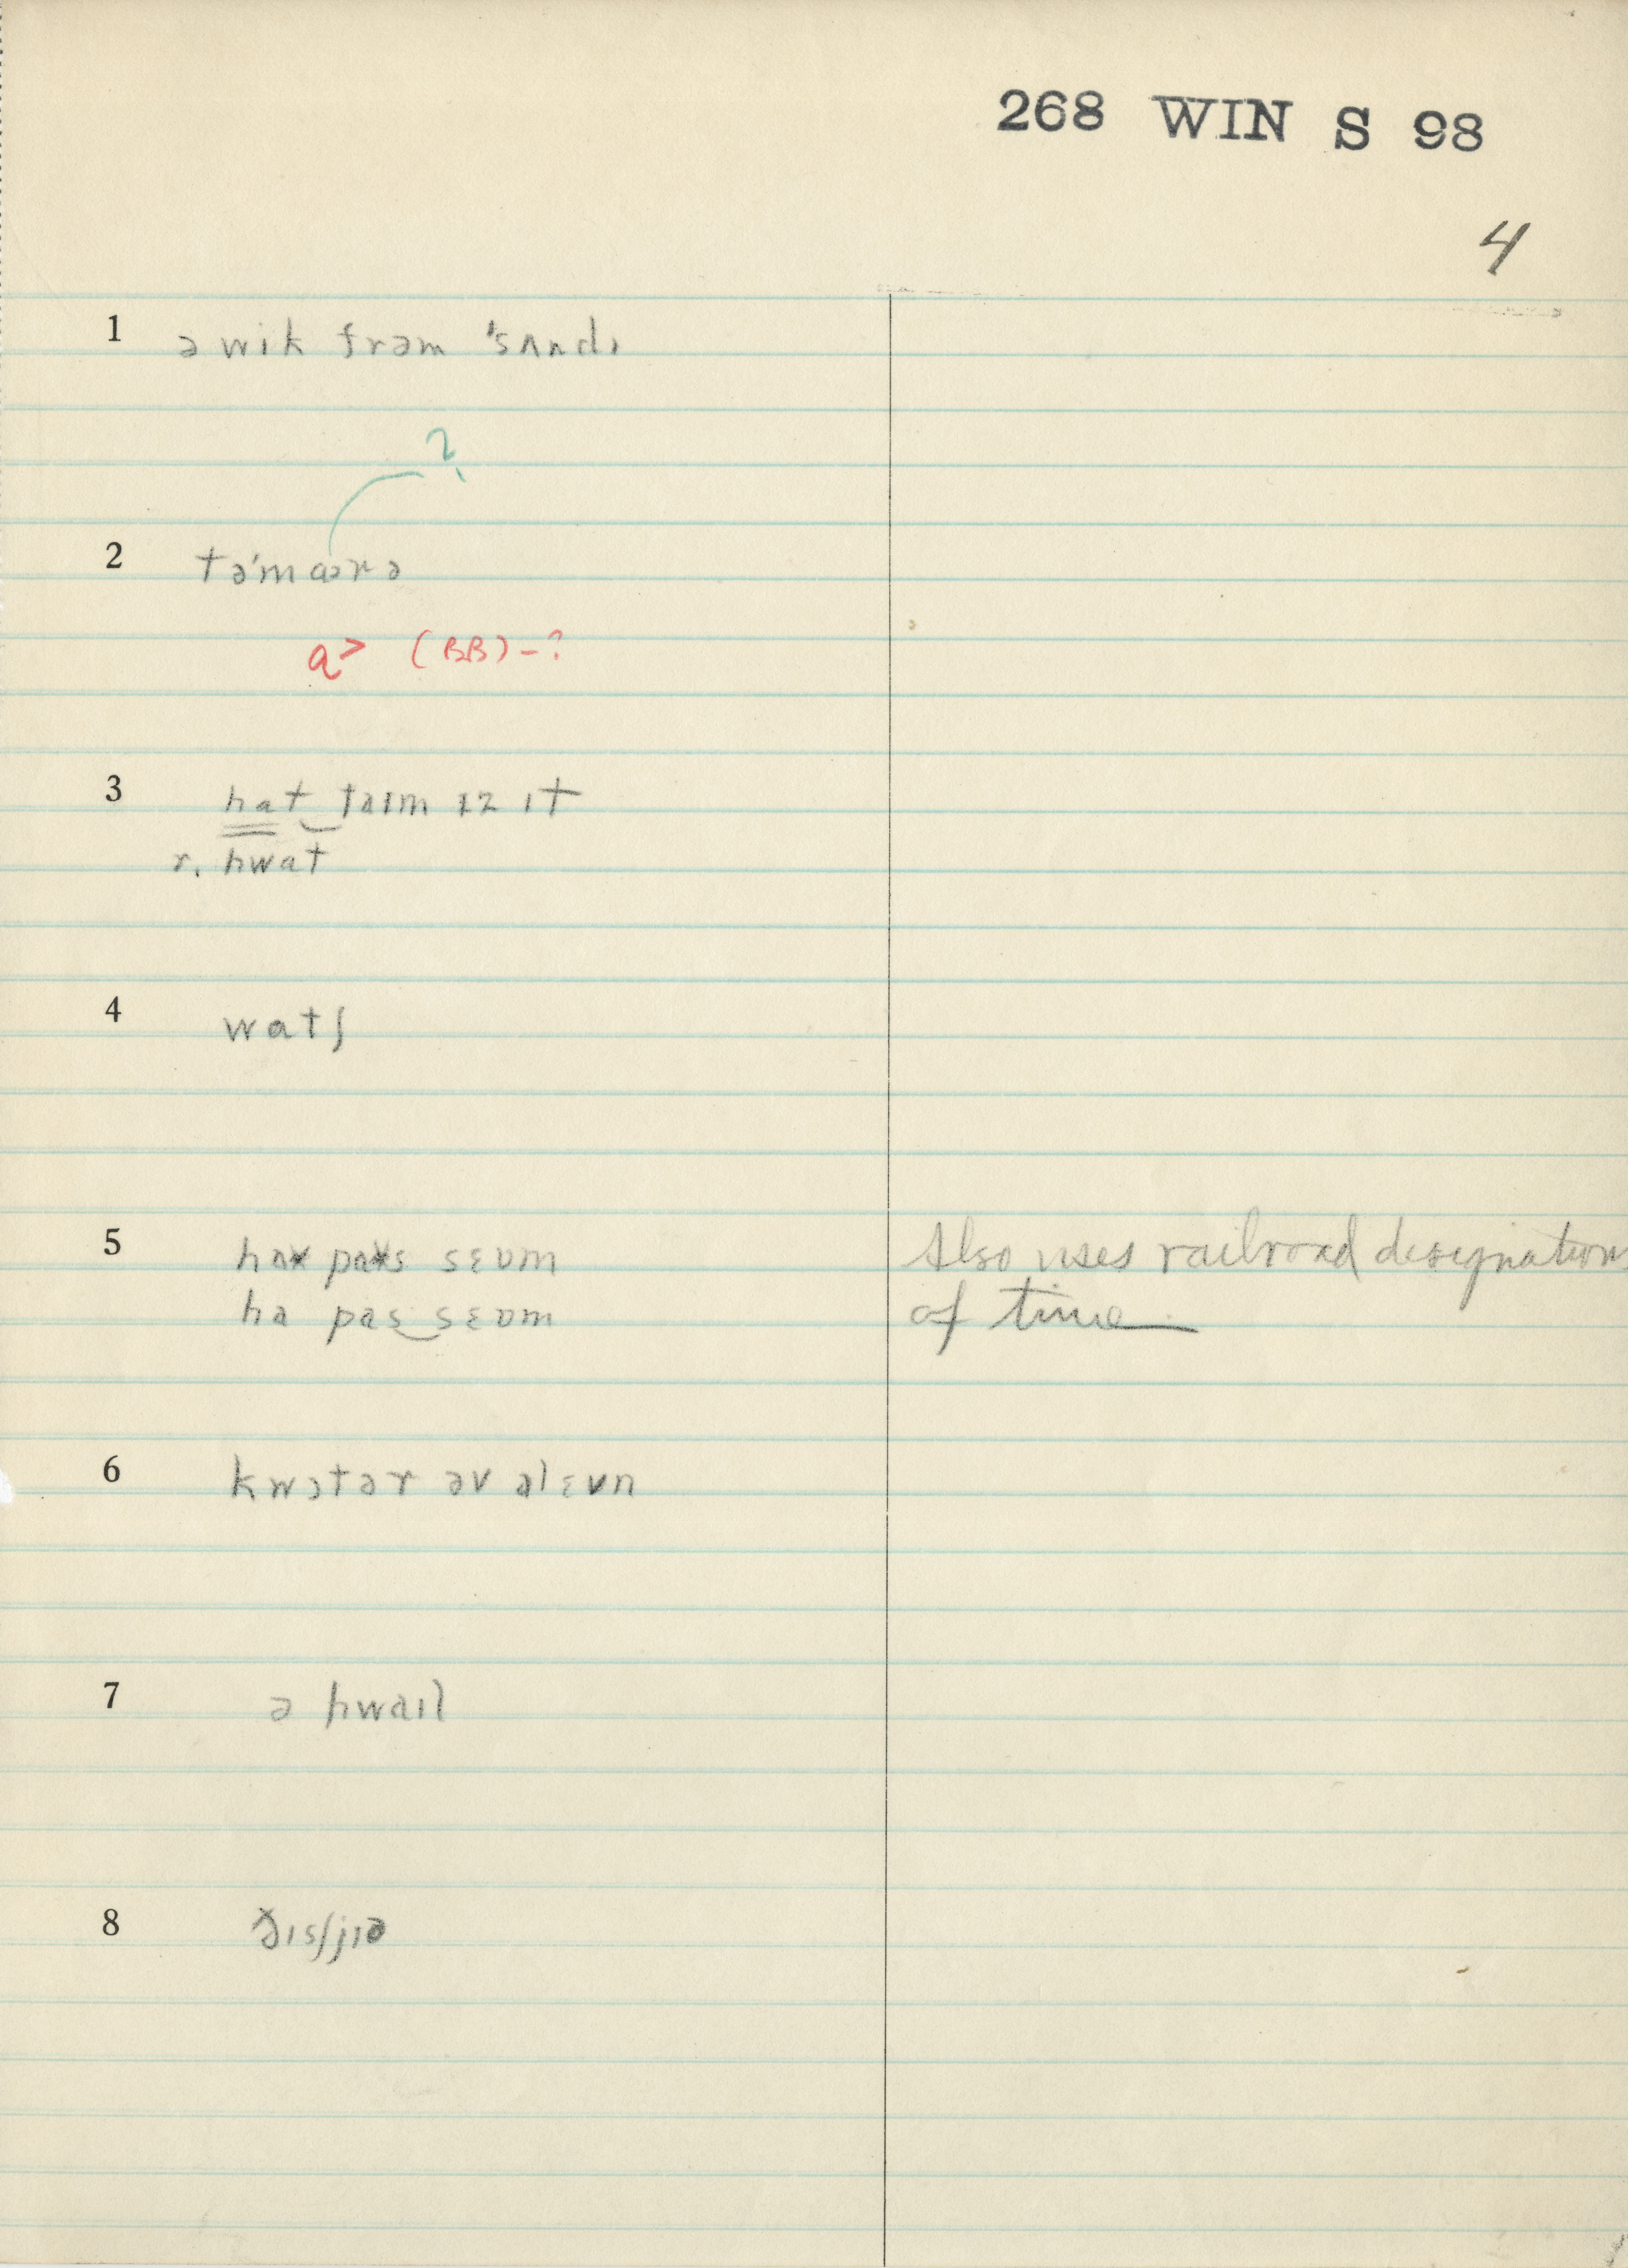 268 WIN S 98
4
1 ə wik frəm 'sʌndɪ
?
2 tə'mɑɔrə
a> (BB)-?
3 hat taɪm ɪz ɪt
r. hwat
4 watʃ
5 haf pas sɛvm
Also uses railroad designations
ha pas sɛvm
of time
6 kwɔtər əv əlɛvn
7 ə hwaɪl
8 ðɪsʃjɪə